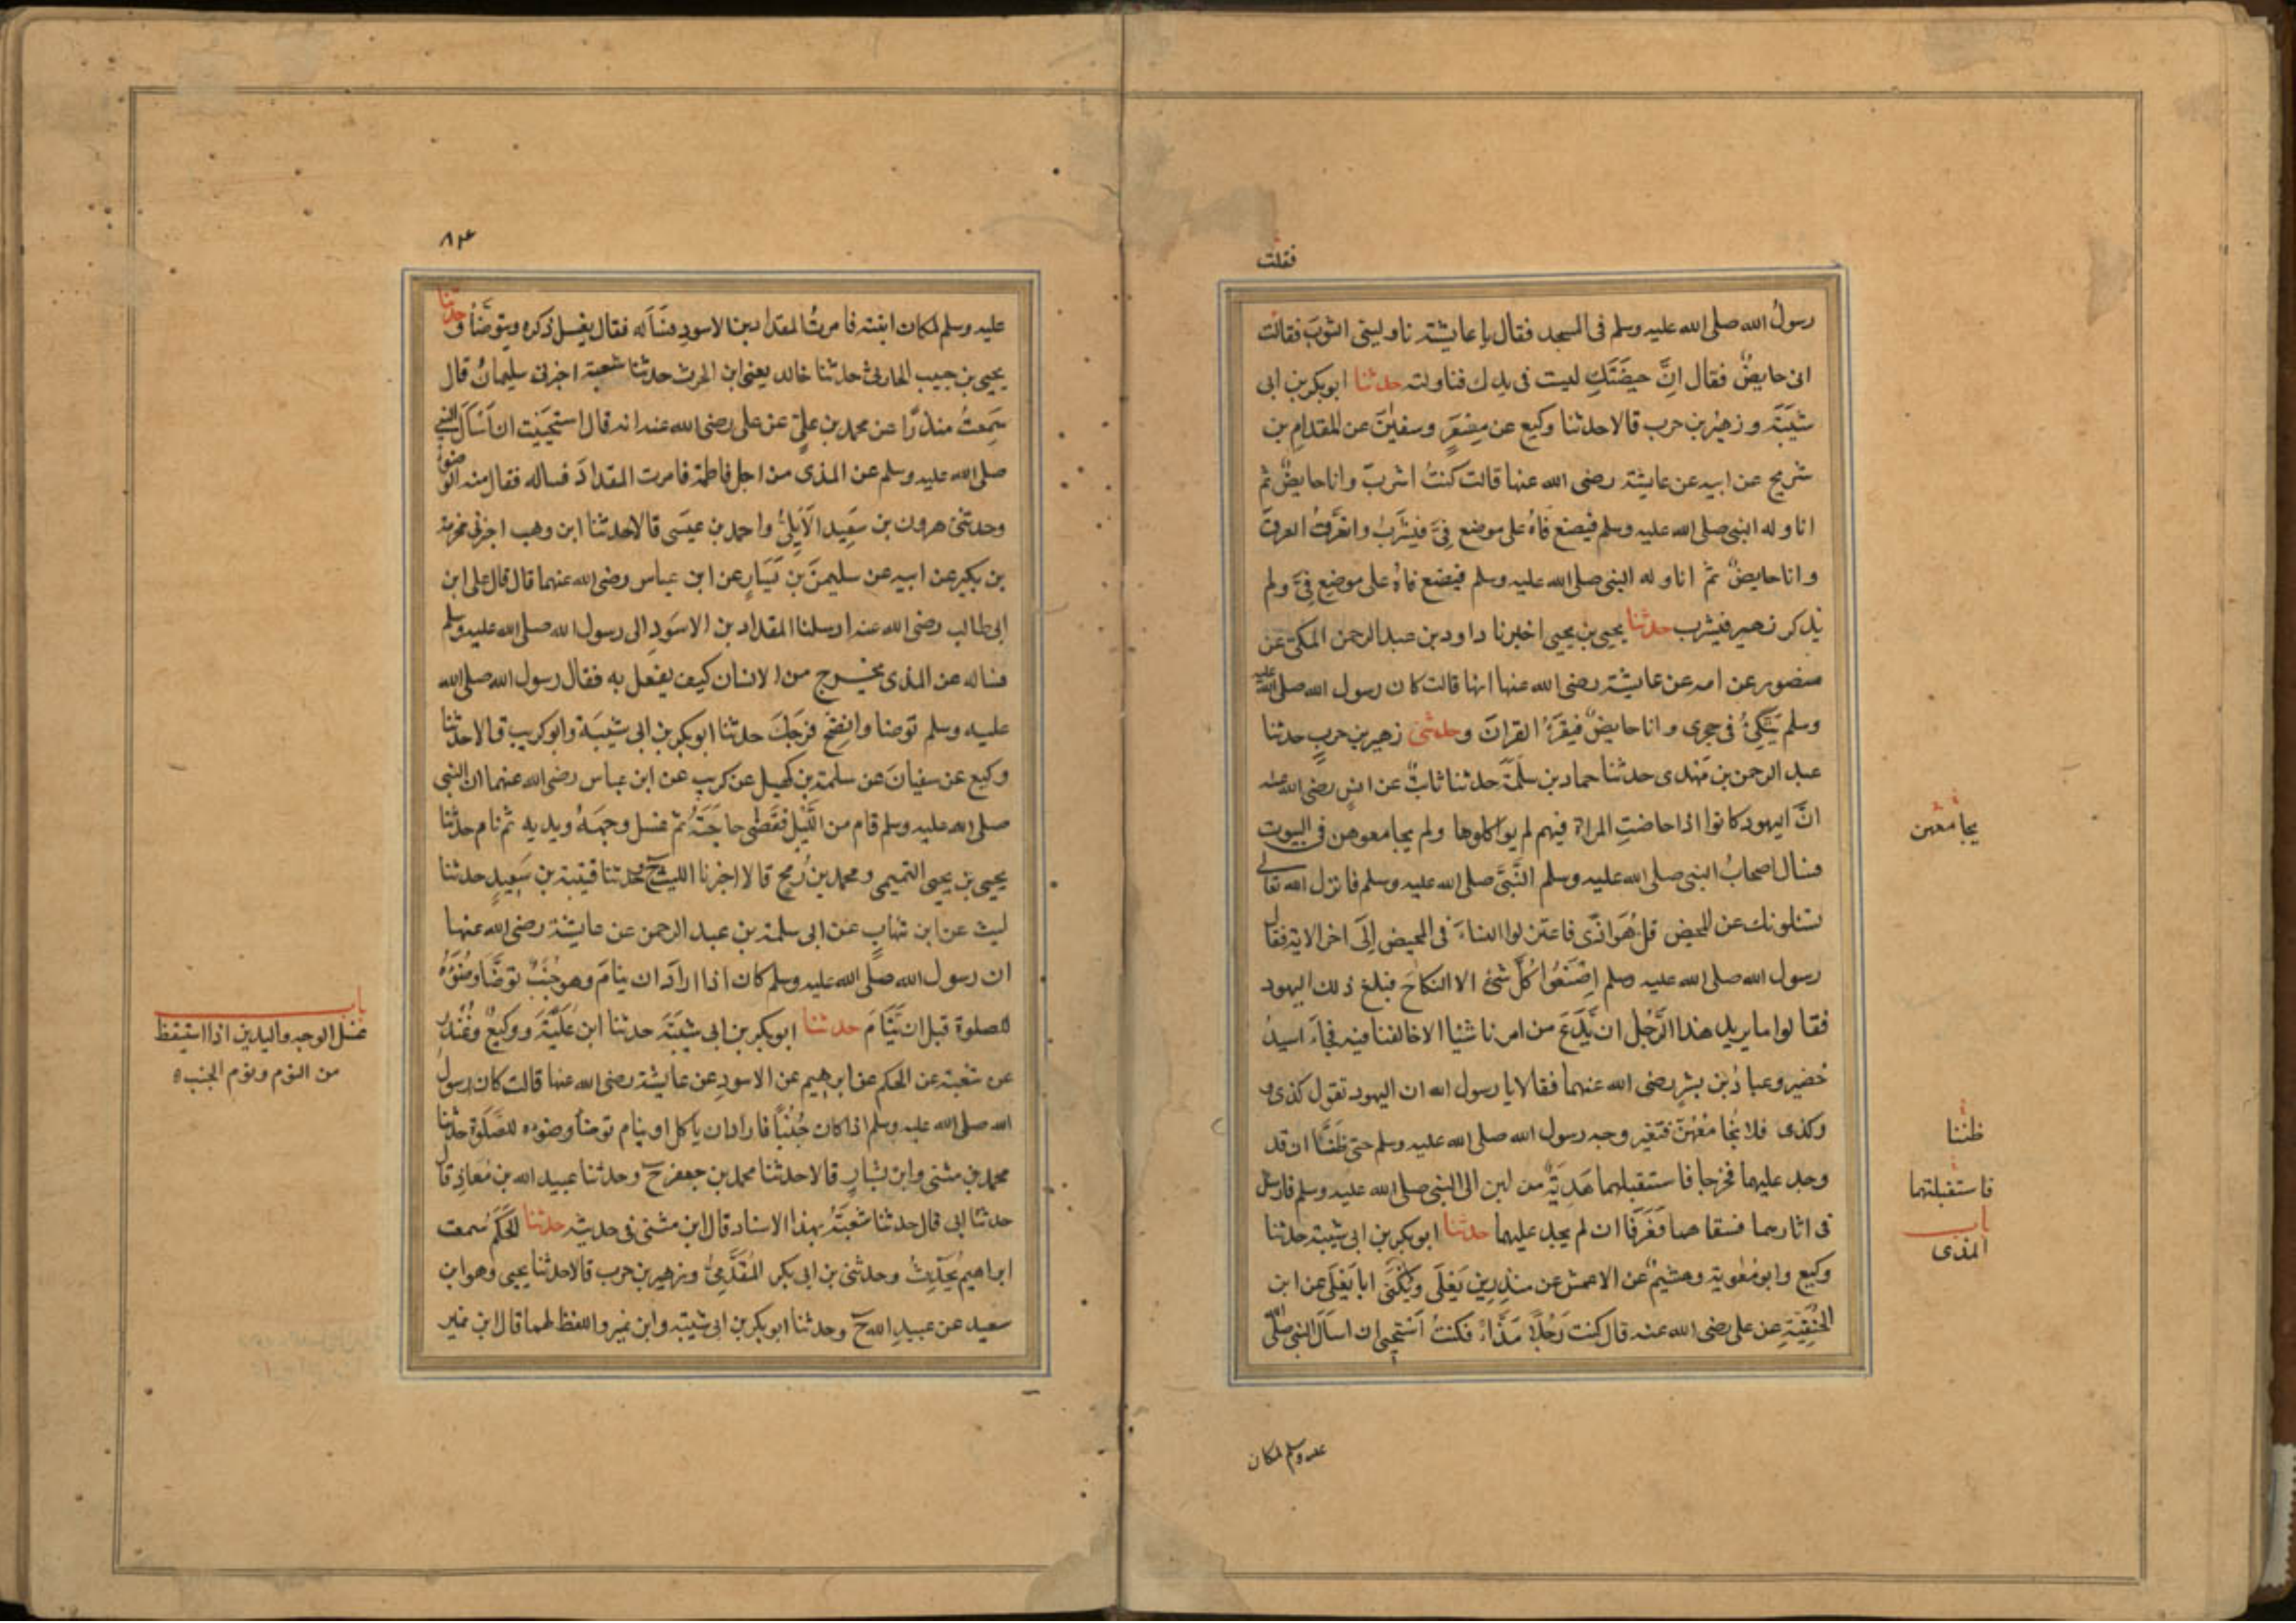 فقلت
رسولُ الله صلى الله عليه وسلم فى المسجد فقال يا عايشة ناولينى الثوبَ فقالت
انى حايضٌ فقال انَّ حيضَتَكِ ليست فى يدك فناولته حدثنا ابوبكر بن ابى
شَيبَةَ و زهيرُ بن حرب قالا حدثنا وكيع عن مِسْعَرٍ وسفيانَ عن المقدامِ بن
شريح عن ابيه عن عايشة رضى الله عنها قالت كنتُ اشربُ وانا حايضٌ ثم
اناوله النبى صلى الله عليه وسلم فيضع فاهُ على موضع فِىَّ فيَشْرَبُ واتعَرَّقُ العرقَ
وانا حايضٌ ثم اناوله النبى صلى الله عليه وسلم فيضع فاهُ على موضع فِىَّ ولم
يذكر زهير فيشرب حدثنا يحيى بن يحيى اخبرنا داود بن عبد الرحمن المكى عن
منصور عن امه عن عايشة رضى الله عنها انها قالت كان رسول الله صلى الله عليه
وسلم يَتَّكِئُ فى حجرى وانا حايضٌ فيقرَءُ القرانَ وحدثنى زهير بن حربٍ حدثنا
عبد الرحمن بن مَهْدى حدثنا حماد بن سلَمَةَ حدثنا ثابتٌ عن انسٍ رضى الله عنه
انَّ اليهود كانوا اذا حاضتِ المراة فيهم لم يواكلوها ولم يجامعوهن فى البيوت
فسال اصحابُ النبى صلى الله عليه وسلم النَّبِىَّ صلى الله عليه وسلم فانزل الله تعالى
يسئلونك عن المحيض قل هُوَ اذًى فاعتزلوا النساءَ فى المحيض اِلَى اخر الاية فقال
رسول الله صلى الله عليه وسلم اصْنَعُوا كُلَّ شئ الا النكاحَ فبلغ ذلك اليهود
فقالوا ما يريد هذا الرَّجُل ان يَّدَعَ من امرنا شيئا الا خالفنا فيه فجآءَ اسيدُ
بن حُضير وعبادُ بن بِشْرٍ رضى الله عنهما فقالا يا رسول الله ان اليهود تقول كذى
وكذى فلا نُجَامعُهُنَّ فتغير وجه رسول الله صلى الله عليه وسلم حتى ظَنَنَّا ان قد
وجد عليهما فخرجا فاستقبلهما هَدِيَّةٌ من لبن الى النبى صلى الله عليه وسلم فارسل
فى اثارهما فسقاهما فَعَرَفَا ان لم يجد عليهما حدثنا ابوبكر بن ابى شيبة حدثنا
وكيع وابو مُعٰوية وهشيمٌ عن الاعمش عن منذرِ بن يَعْلَى ويُكْنَى ابا يَعْلَى عن ابن
الحَنَفِيَّةِ عن على رضى الله عنه قال كنت رَجُلًا مَذَّاءً فكنتُ اَسْتَحيى ان اسال النبى صلى الله
يجامعهن
ظننا
فاستقبلتهما
باب
المذى
عليه وسلم لمكان
عليه وسلم لمكان ابنته فامرتُ المقداد بن الاسودِ فسَاَله فقال يغسل ذكره ويتوضَّأُ وحدثنا
يحيى بن حبيب الحارثى حدثنا خالد يعنى ابن الحرث حدثنا شعبة اخبرنى سليمانُ قال
سَمِعتُ منذرًا عن محمد بن علىٍّ عن على رضى الله عنه انه قال استحيَيت ان اَسْاَلَ النبى
صلى الله عليه وسلم عن المذى من اجل فاطمة فامرت المقدادَ فساله فقال منه الوضوءُ
وحدثنى هرون بن سَعِيد الاَيْلِىُّ واحمد بن عيسَى قالا حدثنا ابن وهب اخبرنى مخرمة
بن بكير عن ابيه عن سليمٰنَ بن يَسَارٍ عن ابن عباس رضى الله عنهما قال قال على ابن
ابى طالب رضى الله عنه ارسلنا المقداد بن الاسوَدِ الى رسول الله صلى الله عليه وسلم
فساله عن المذى يخرج من الانسان كيف يفعل به فقال رسول الله صلى الله
عليه وسلم توضا وانضِحْ فرجَكَ حدثنا ابوبكر بن ابى شيبَة وابو كريب قالا حدثنا
وكيع عن سفيانَ عن سلمة بن كهيل عن كريبٍ عن ابن عباس رضى الله عنهما ان النبى
صلى الله عليه وسلم قام من اللَّيْل فقَضٰى حاجَتَهُ ثم غسل وجهَهُ ويديه ثم نام حدثنا
يحيى بن يحيى التميمى ومحمد بن رُمح قالا اخبرنا الليث ح وحدثنا قتيبة بن سَعِيدٍ حدثنا
ليث عن ابن شهابٍ عن ابى سلمة بن عبد الرحمن عن عايشة رضى الله عنها
ان رسول الله صلَّى الله عليه وسلم كان اذا ارادَ ان ينامَ وهو جُنُبٌ توضَّأ وضُوءَهُ
للصلوة قبل ان يَّنَامَ حدثنا ابوبكر بن ابى شيبَةَ حدثنا ابن عُلَيَّةَ ووكيعٌ وغُنْدَرٌ
عن شعبة عن الحكم عن ابرهيم عن الاسودِ عن عايشة رضى الله عنها قالت كان رسولُ
الله صلى الله عليه وسلم اذا كان جُنُبًا فاراد ان ياكل او ينام توضأ وضوءه للصَّلٰوة حدثنا
محمد بن مثنى وابن بشارٍ قالا حدثنا محمد بن جعفر ح وحدثنا عبيد الله بن مُعاذٍ قال
حدثنا ابى قال حدثنا شعبَةُ بهذا الاسناد قال ابن مثنى فى حديثه حدثنا الحَكَمُ سمعت
ابراهيم يُحَدِّثُ وحدثنى بن ابى بكر المُقَدَّمِىُّ وزهير بن حرب قالا حدثنا يحيى وهو ابن
سعيد عن عبيدِ الله ح وحدثنا ابوبكر بن ابى شيبة وابن نمير واللفظ لهما قال ابن نمير
باب
غسل الوجه واليدين اذا استيقظ
من النوم ونوم الجنب